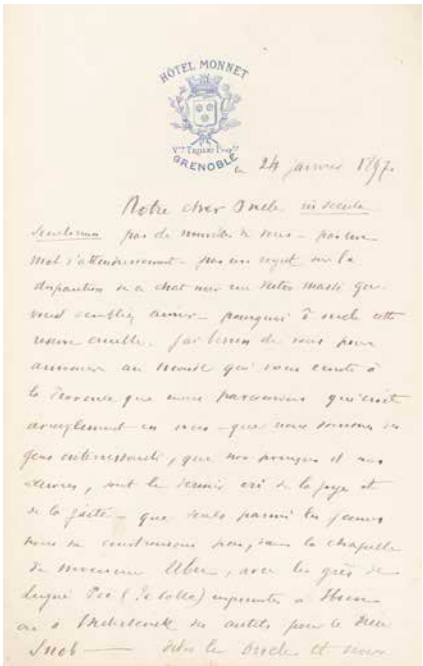 HÔTEL MONNET
GRENOBLE
le 24 janvier 1897.
Notre cher Oncle in secula
seculorum pas de nouvelles de vous - pas un
mot d'attendrissement - pas un regret sur la
disparition de ce chat noir un notes masse que
vous sembliez aimer - pourquoi ô oncle cette
reserve cruelle. J'ai besoin de vous pour
annoncer au monde qui vous écoute à
la Province que nous parcourons qui croit
aveuglement en vous - que nous sommes des
gens intéressants, que nos et nos
œuvres, sont le dernier cri de la sagesse et
de la gaîté - que seuls parmi les jeunes
nous ne construisons pas, dans la chapelle
de monsieur Uber, avec les grès de
Lugné Poë empruntés à Ibsen
ou à Maeterlinck des autels pour le Dieu
Snob - dites le Oncle et nous